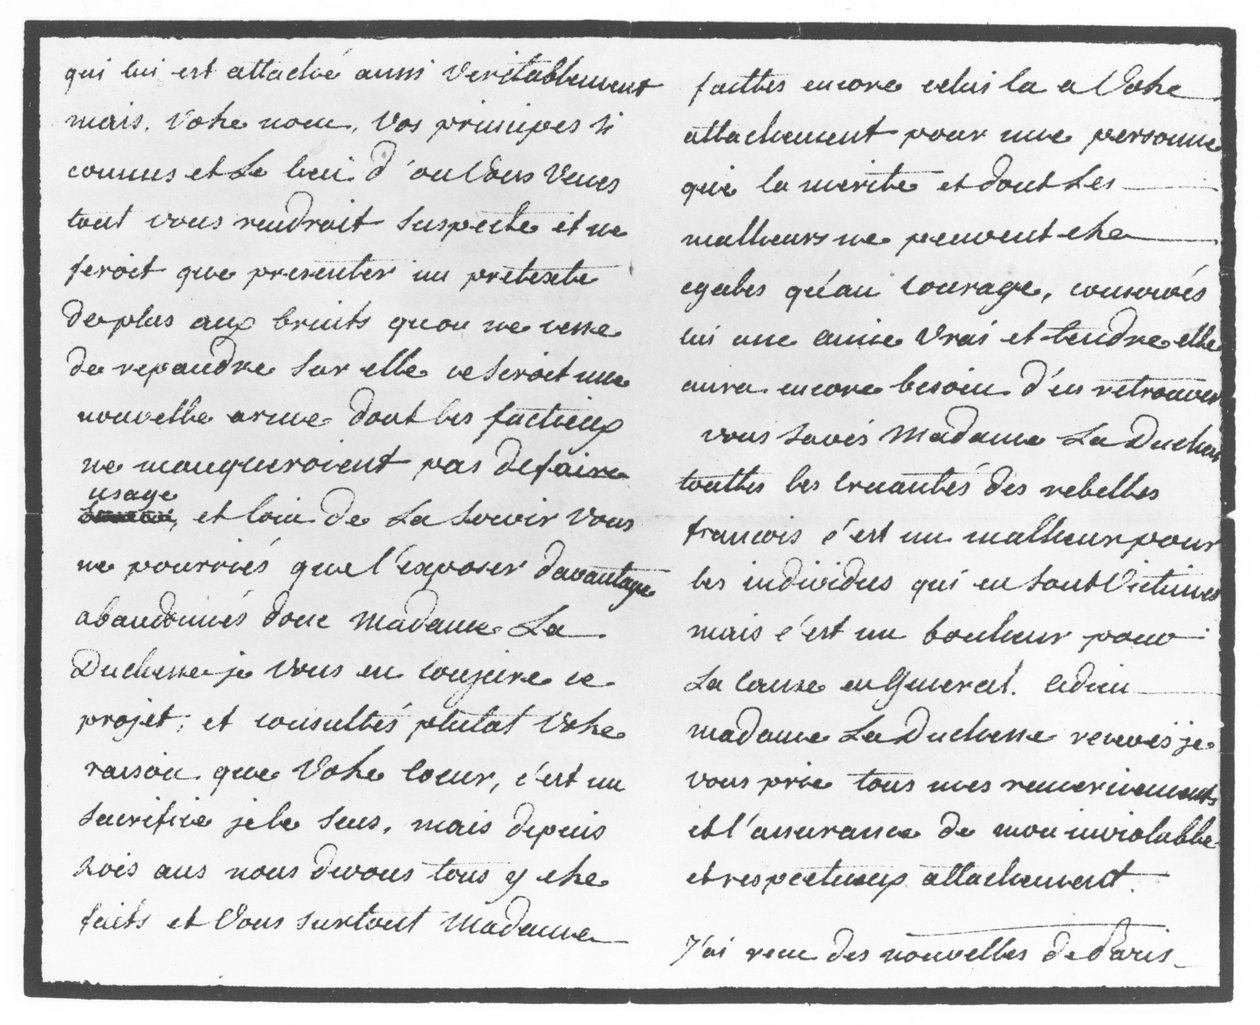 qui lui est attaché aussi veritablement
mais. Votre nom, Vos principes si
connus et Le lieu d'ou Vous Venes
tout vous rendroit suspecte et ne
feroit que presenter un pretexte
de plus aux bruits qu'on ne cesse
de repandre sur elle ce seroit une
nouvelle arme dont les factieux
ne manqueroient pas de faire
usage
, et loin de La servir vous
ne pourriés que l'exposer davantage
abandonnés donc Madame La
Duchesse je vous en conjure ce
projet; et consultés plutat Votre
raison que Votre coeur, c'est un
sacrifice je le sens, mais depuis
trois ans nous devons tous y etre
faits et Vous surtout Madame
faittes encore celui la a Votre
attachement pour une personne
qui la merite et dont Les
malheurs ne peuvent etre
egales qu'au courage, conservés
lui une amie Vrai et tendre elle
aura encore besoin d'en retrouver
vous savés Madame La Duchesse
touttes les cruautés des rebelles
francois c'est un malheur pour
les individus qui en sont Victimes
mais c'est un bonheur pour
La cause en General. adieu
madame La Duchesse recevés je
vous prie tous mes remerciements
et l'assurance de mon inviolable
et respectueux attachement.
J'ai recu des nouvelles de Paris